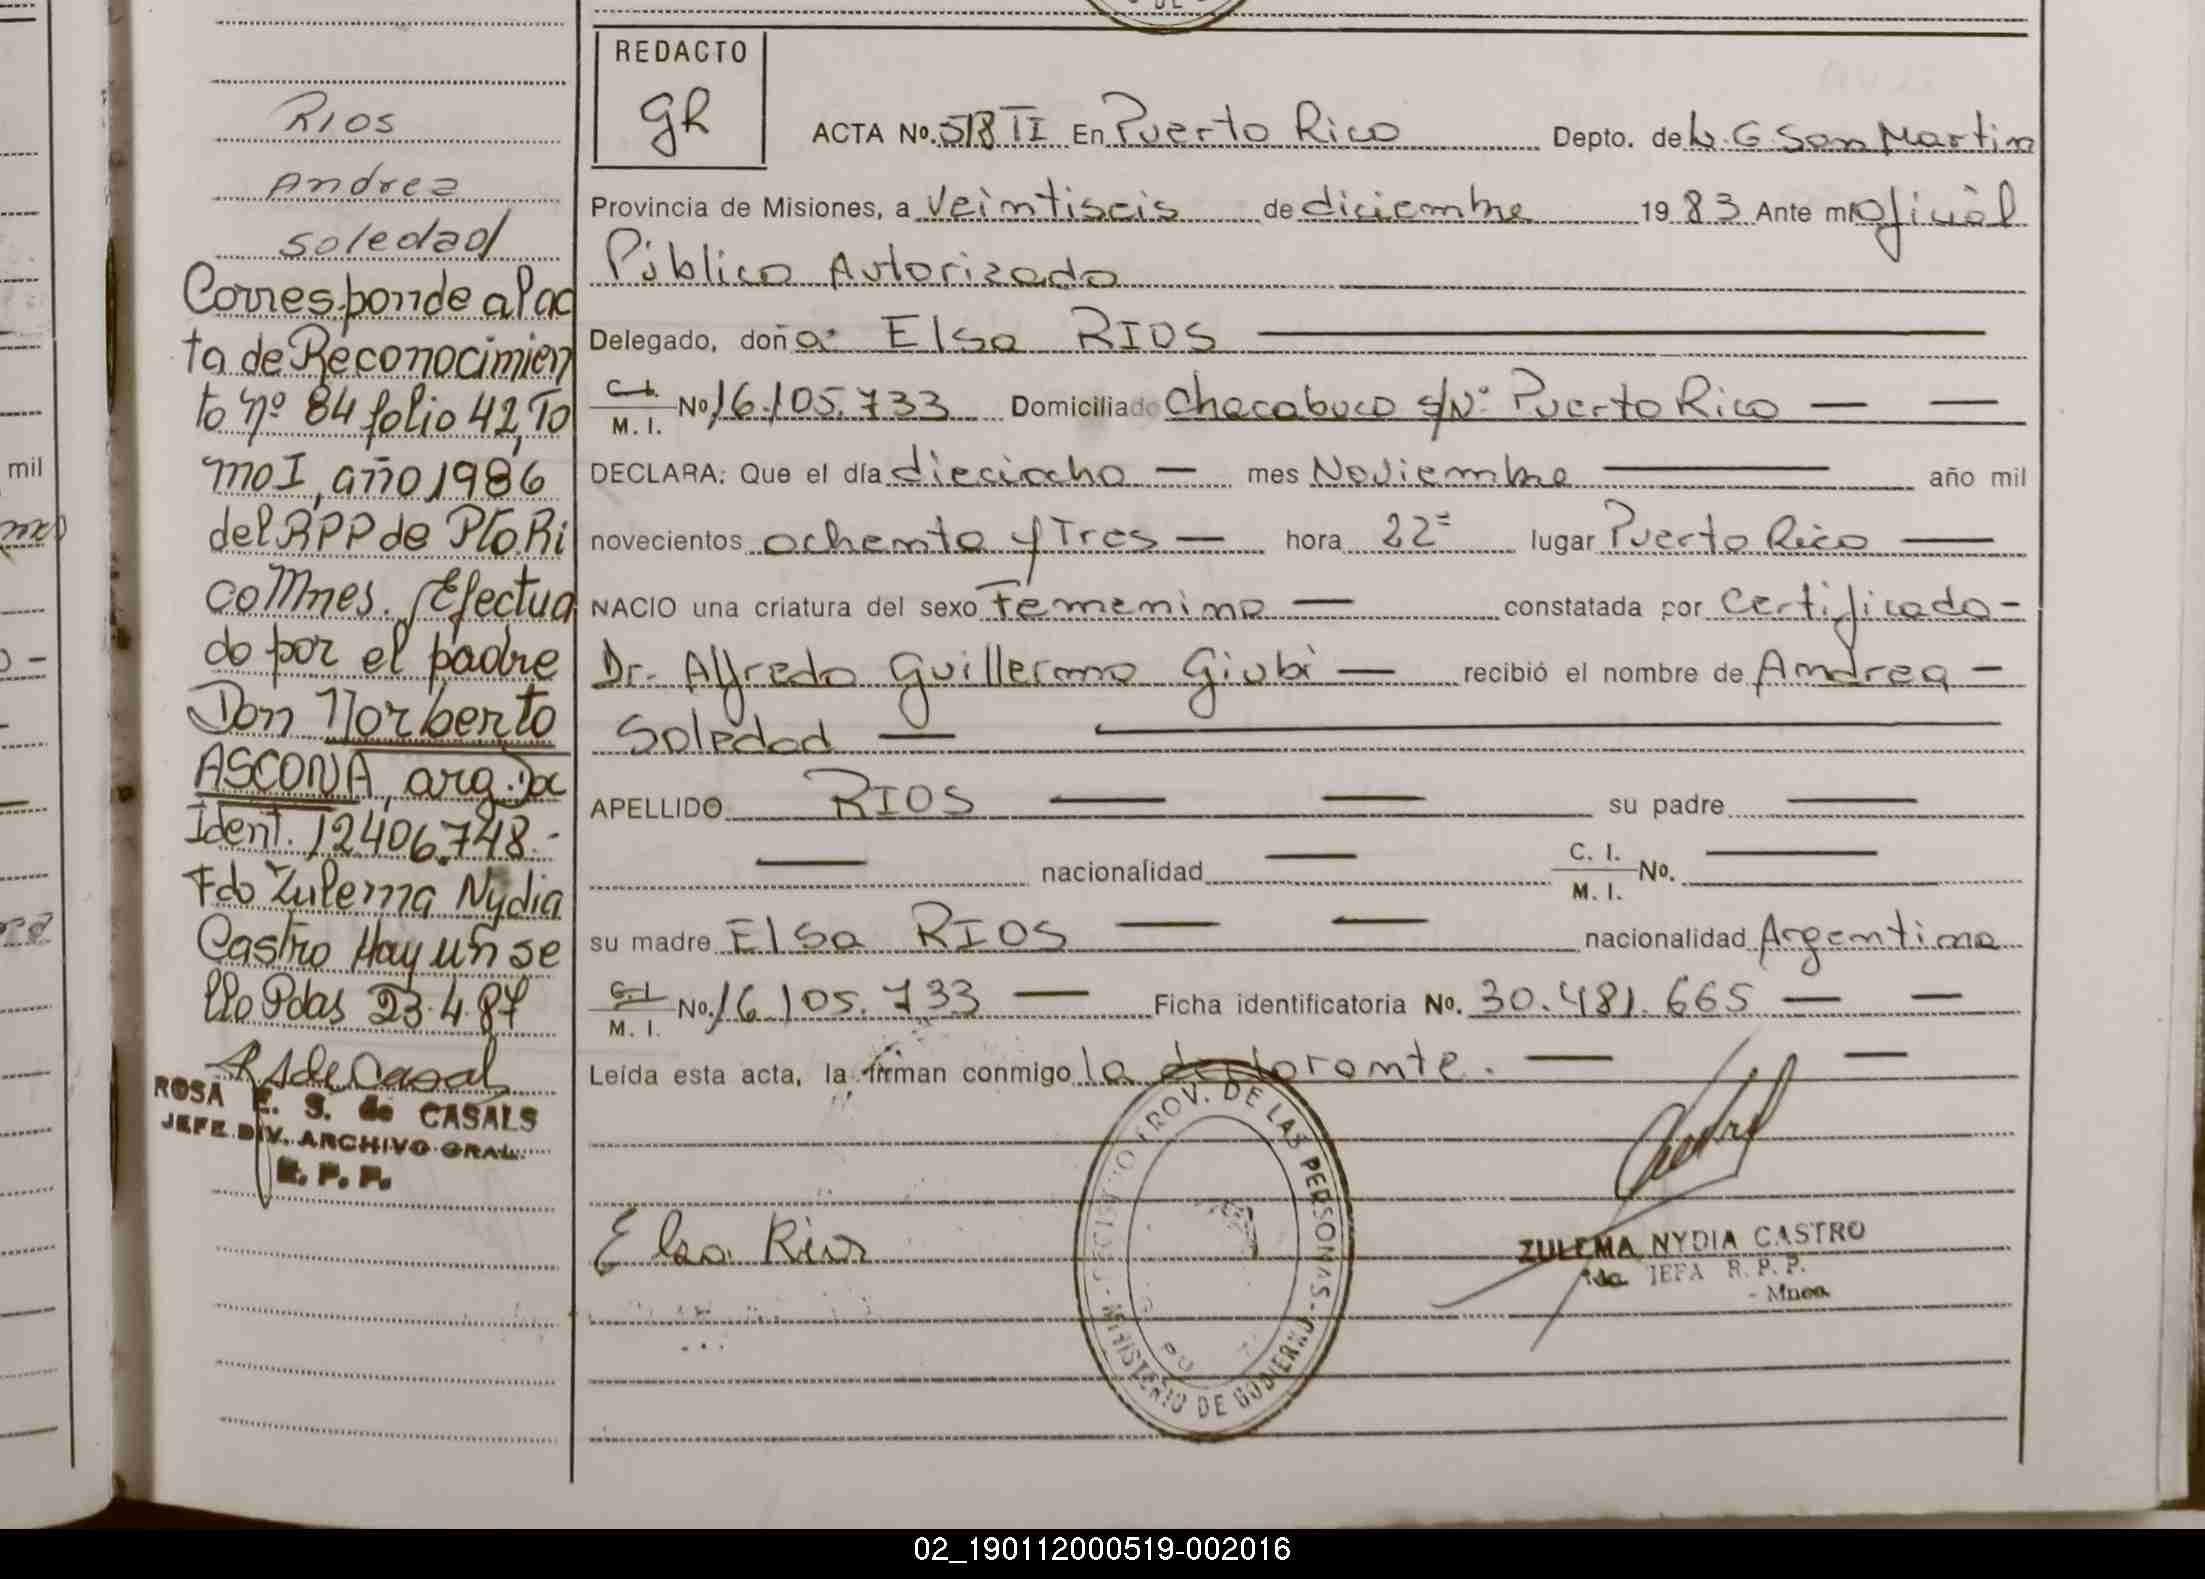 RIOS
Andrea
Soledad
Corresponde al ac
ta de Reconocimien
to nº 84 folio 42, To
mo I, año 1986
del RPP de Pto Ri
co Mnes. Efectua
do por el padre
Don Norberto
ASCONA, arg. Dc
Ident. 12406.748.-
Fdo Zulema Nydia
Castro Hay un se
llo Pdas 23.4.87
RS de Casals
ROSA E. S. de CASALS
JEFE DIV. ARCHIVO GRAL.
R. P. P.
REDACTO
gR
ACTA Nº. 518 TI En Puerto Rico Depto. de L. G. San Martin
Provincia de Misiones, a Veintiseis de diciembre 1983 Ante mi Oficial
Público Autorizado
Delegado, doña: Elsa RIOS
C. I.
M. I. Nº 16.105.733 Domiciliado Chacabuco s/Nº Puerto Rico — —
DECLARA: Que el día dieciocho — mes Noviembre — año mil
novecientos ochenta y Tres — hora 22= lugar Puerto Rico —
NACIO una criatura del sexo Femenino — constatada por Certificado -
Dr. Alfredo Guillermo Giubi — recibió el nombre de Andrea -
Soledad —
APELLIDO RIOS — — su padre —
— nacionalidad — C. I.
M. I. No. —
su madre Elsa RIOS — — nacionalidad Argentina
C. I.
M. I. No. 16.105.733 — Ficha identificatoria No. 30.481.665 — —
Leída esta acta, la firman conmigo la declarante. — —
Elsa Rios
REGISTRO PROV. DE LAS PERSONAS - MINISTERIO DE GOBIERNO
ZULEMA NYDIA CASTRO
JEFA R. P. P.
- Mnes.
mil
02_190112000519-002016